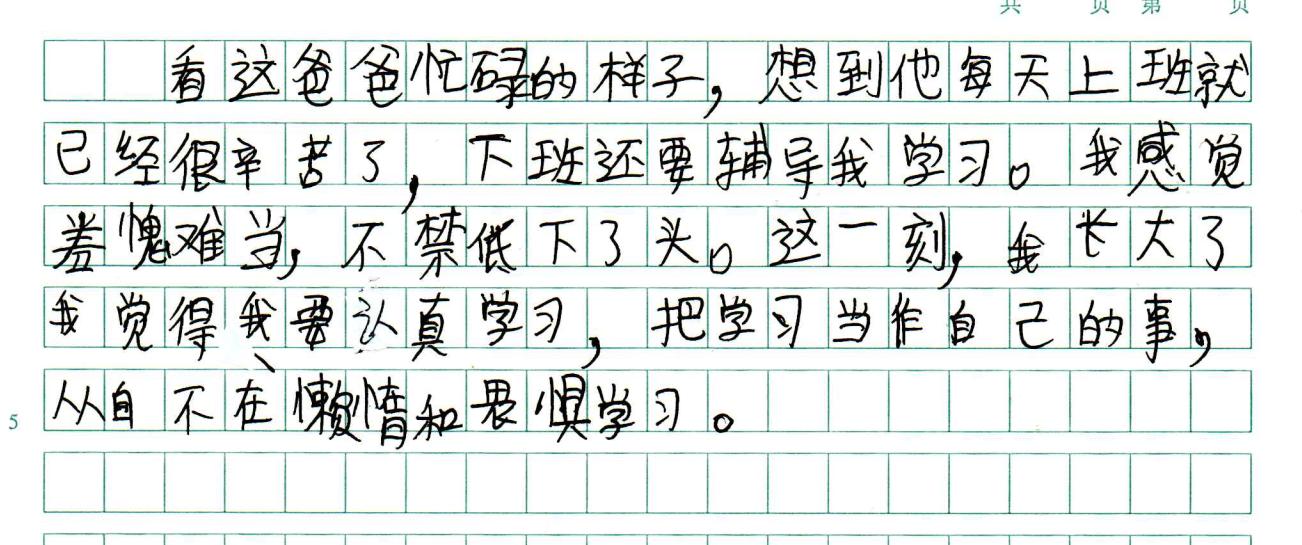 共 页 第 页
看这爸爸忙碌的样子，想到他每天上班就
已经很辛苦了，下班还要辅导我学习。我感觉
羞愧难当，不禁低下了头。这一刻，我长大了
我觉得我要认真学习，把学习当作自己的事，
从自不在懒惰和畏惧学习。
5